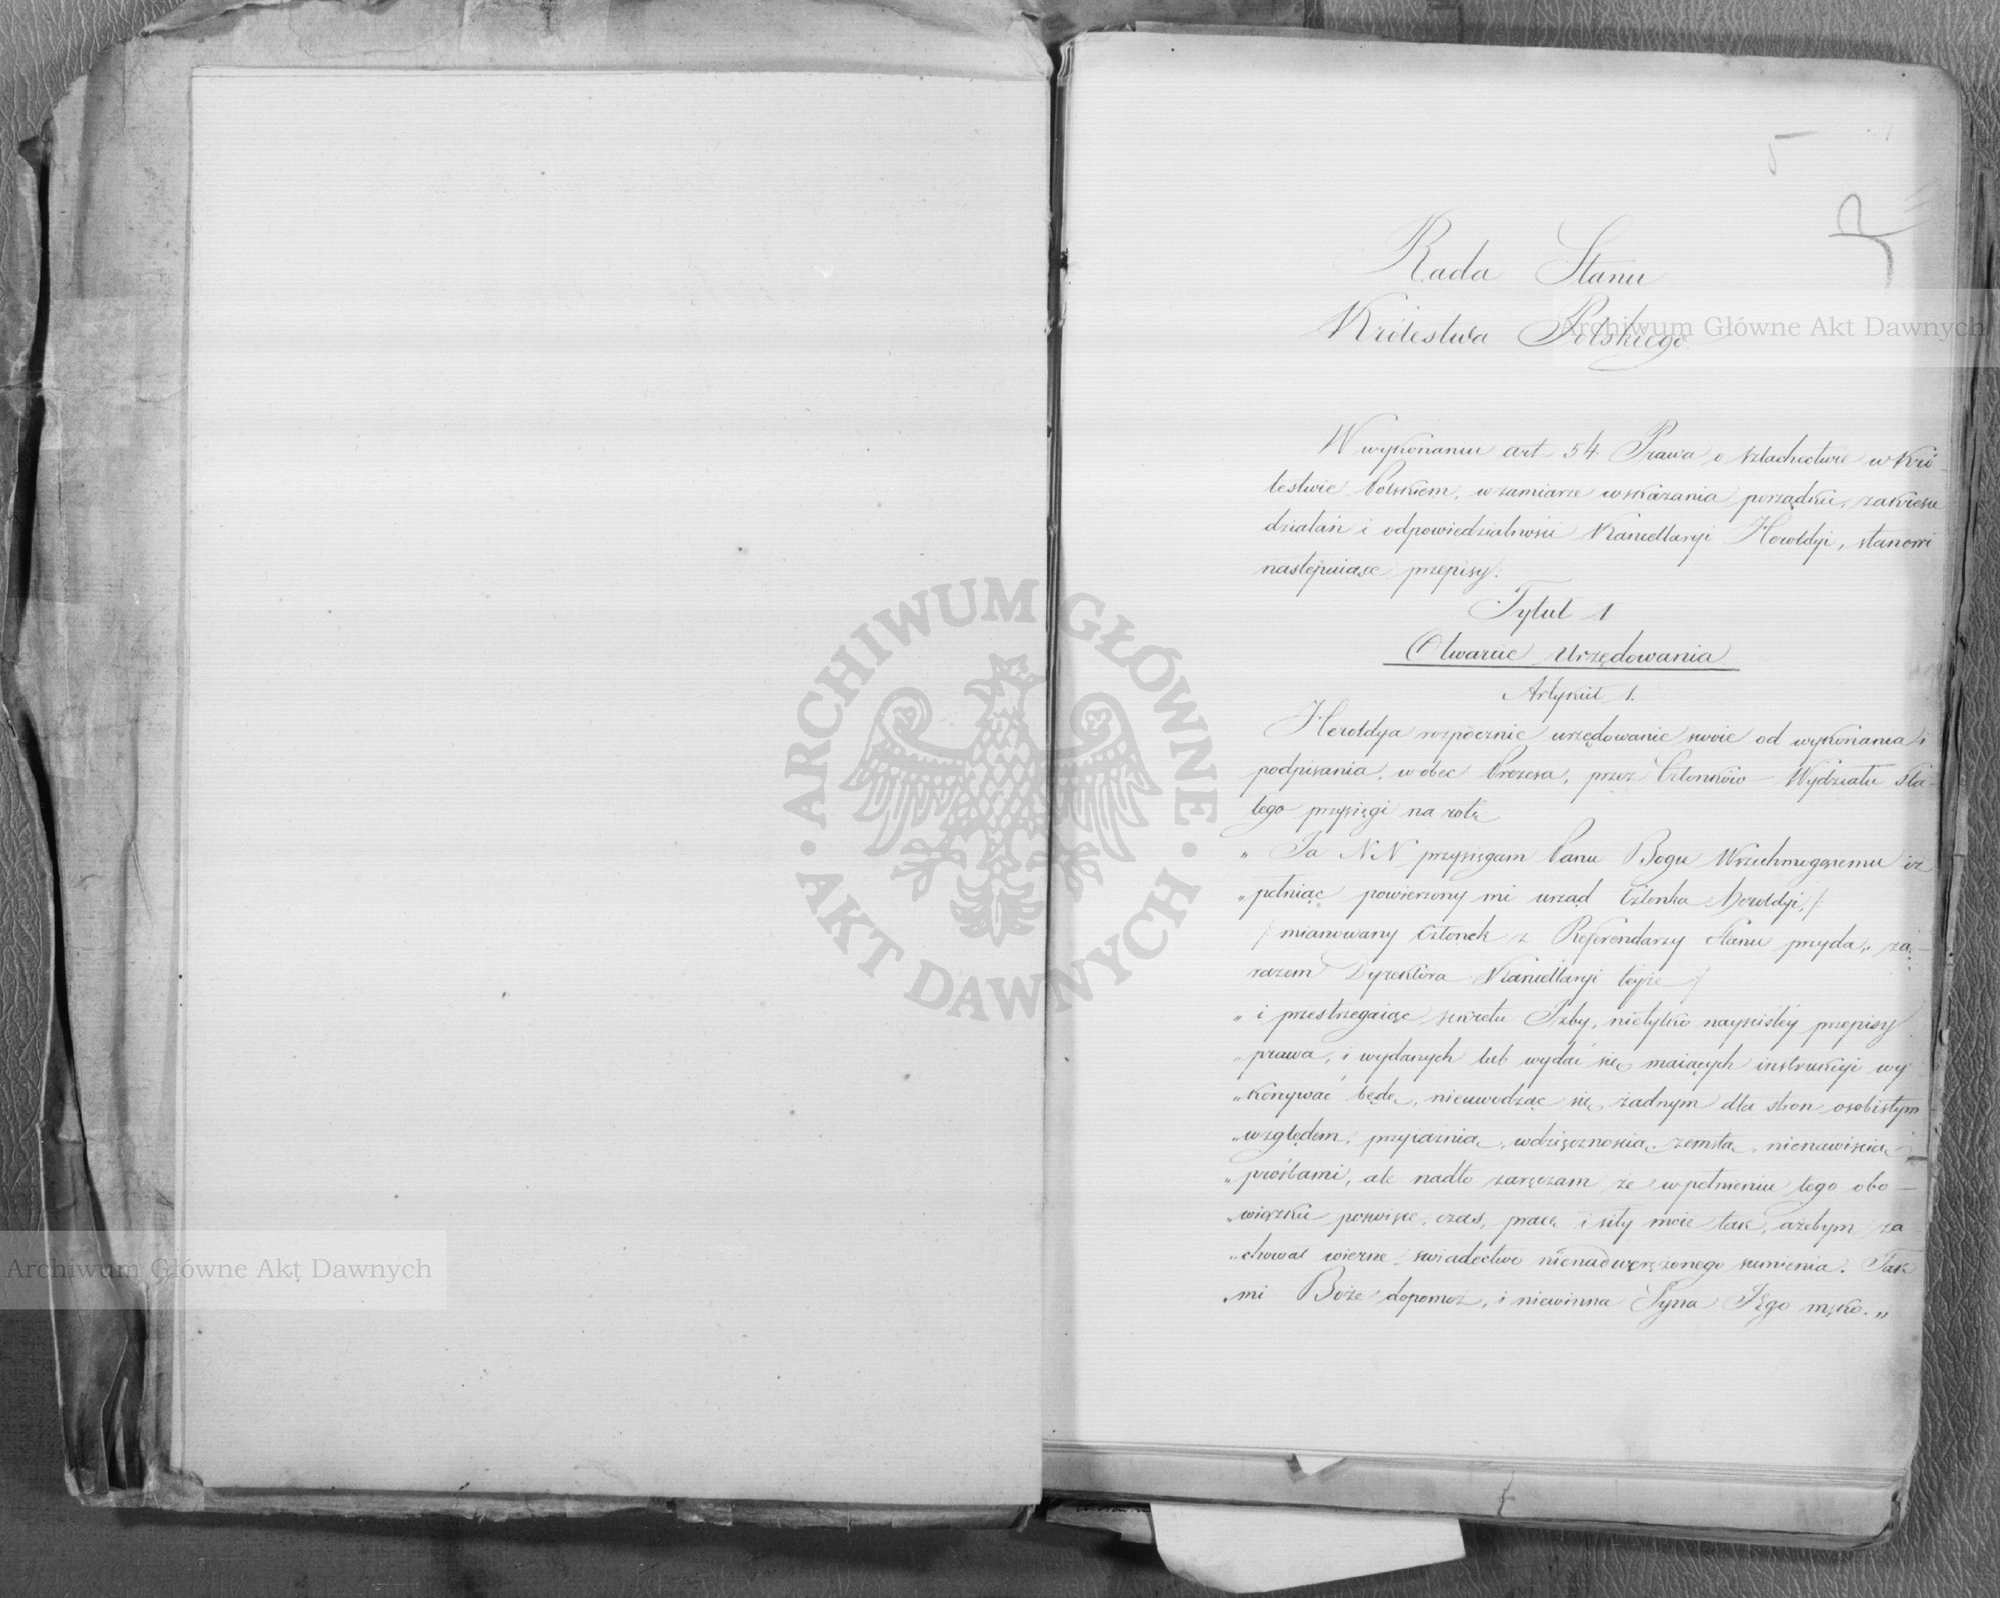 5
Rada Stanu
Królestwa Polskiego
W wykonaniu art. 54 Prawa o szlachectwie w Kró-
lestwie Polskiem, w zamiarze wskazania porządku, zakresu
działań i odpowiedzialności Kancellaryi Heroldyi, stanowi
następuiące przepisy:
Tytuł 1
Otwarcie Urzędowania
Artykuł 1.
Heroldya rozpocznie urzędowanie swoie od wykonania i
podpisania, wobec Prezesa, przez Członków Wydziału sta-
łego przysięgi na rotę
„ Ja NN przysięgam Panu Bogu Wszechmogącemu iż
„ pełniąc powierzony mi urząd Członka Heroldyi, /:
/: mianowany Członek z Referendarzy Stanu przyda „ za-
razem Dyrektora Kancellaryi teyże :/
„ i przestrzegaiąc sekretu Izby, nietylko nayściśley przepisy
„ prawa, i wydanych lub wydać się maiących instrukcyi wy
„ konywać będę, nieuwodząc się żadnym dla stron osobistym
„ względem, przyiaźnią, wdzięcznością, zemstą, nienawiścią,
„ prośbami, ale nadto zaręczam że w pełnieniu tego obo-
„ wiązku poświęcę, czas, pracę i siły moie tak, ażebym za
„ chował wierne świadectwo nienadwerężonego sumienia. Tak
„ mi Boże dopomoż, i niewinna Syna Jego męko. „
Archiwum Główne Akt Dawnych
Archiwum Główne Akt Dawnych
ARCHIWUM GŁÓWNE · AKT DAWNYCH ·